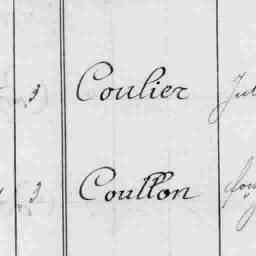 3 Coulier Jul
3 Coullon